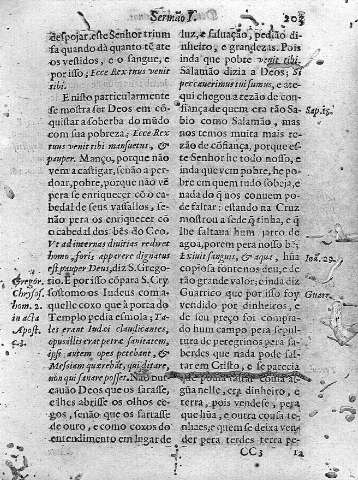 Sermaõ I.
203
despojar, este Senhor trium
fa quando dà quanto tẽ ate
os vestidos, e o sangue, e
por isso; Ecce Rex tuus venit
tibi.
E nisto particularmente
se mostra ser Deos em cõ
quistar a soberba do mũdo
com sua pobreza; Ecce Rex
tuus venit tibi mansuetus, &
pauper. Manço, porque não
vem a castigar, senão a per-
doar, pobre, porque não vẽ
pera se enriquecer cõ o ca-
bedal de seus vassalos, se-
não pera os enriquecer cõ
o cabedal dos bẽs do Ceo.
Ve ad infernas divitias redire t
homo, foris apparere dignatus
est pauper Deus, diz S. Grego-
rio. E por isso cõpara S. Cry
sostomo os Iudeus com a-
quelle coxo que â porta do
Templo pedia esmola; Ta-
les erant Iudei claudicantes,
opusilli erat petræ sanitatem,
ipsi autem opes petebant, &
Messiam quærebãt, qui ditare,
non qui sanare posset. Não bus
cauão Deos que os sarasse,
e lhes abrisse os olhos ce-
gos, senão que os fartasse
de ouro, e como coxos do
entendimento em lugar de
Gregor.
Chrysos.
hom. 2.
in acta
Apost.
c. 3.
luz, e saluação, pedião di-
nheiro, e grandezas. Pois
inda que pobre venit tibi.
Salamão dizia a Deos; Si
peccaverimus tui sumus, e ate
qui chegou a rezão de con-
fiança de quem era tão Sa-
bio como Salamão, mas
nos temos muita mais re-
zão de cõfiança, porque es-
te Senhor he todo nosso, e
inda que vem pobre, he po
bre em quem tudo sobeja, e
nada do q nos conuem po-
de faltar; estando na Cruz
mostrou a sede q tinha, e q
lhe faltaua hum jarro de
agoa, porem pera nosso bẽ;
Exiuit sanguis, & aqua, hũa
copiosa fonte nos deu, e de
tão grande valor; e inda diz
Guarrico que por isso foy
vendido por dinheiros, e
de seu preço foi compra-
do hum campo pera sepul-
tura de peregrinos pera sa-
berdes que nada pode fal-
tar em Cristo, e se parecia
que podia faltar cousa a-
gũa nelle, era dinheiro, e
terra, pois vendese, pera
que hũa, e outra cousa te-
nhaes; e quem se deixa ven-
der pera terdes terra pe-
Sap. 15.
Ioã. 29.
Guarr.
CC 3
ra